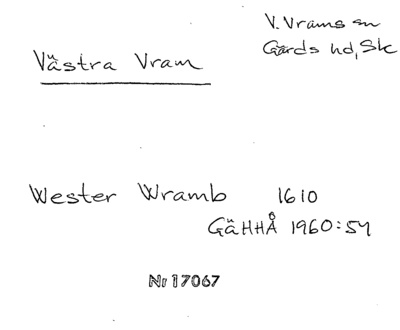 V. Vrams sn
Gärds hd, Sk
Västra Vram
Wester Wramb 1610
GäHHÅ 1960:54
Nr 17067